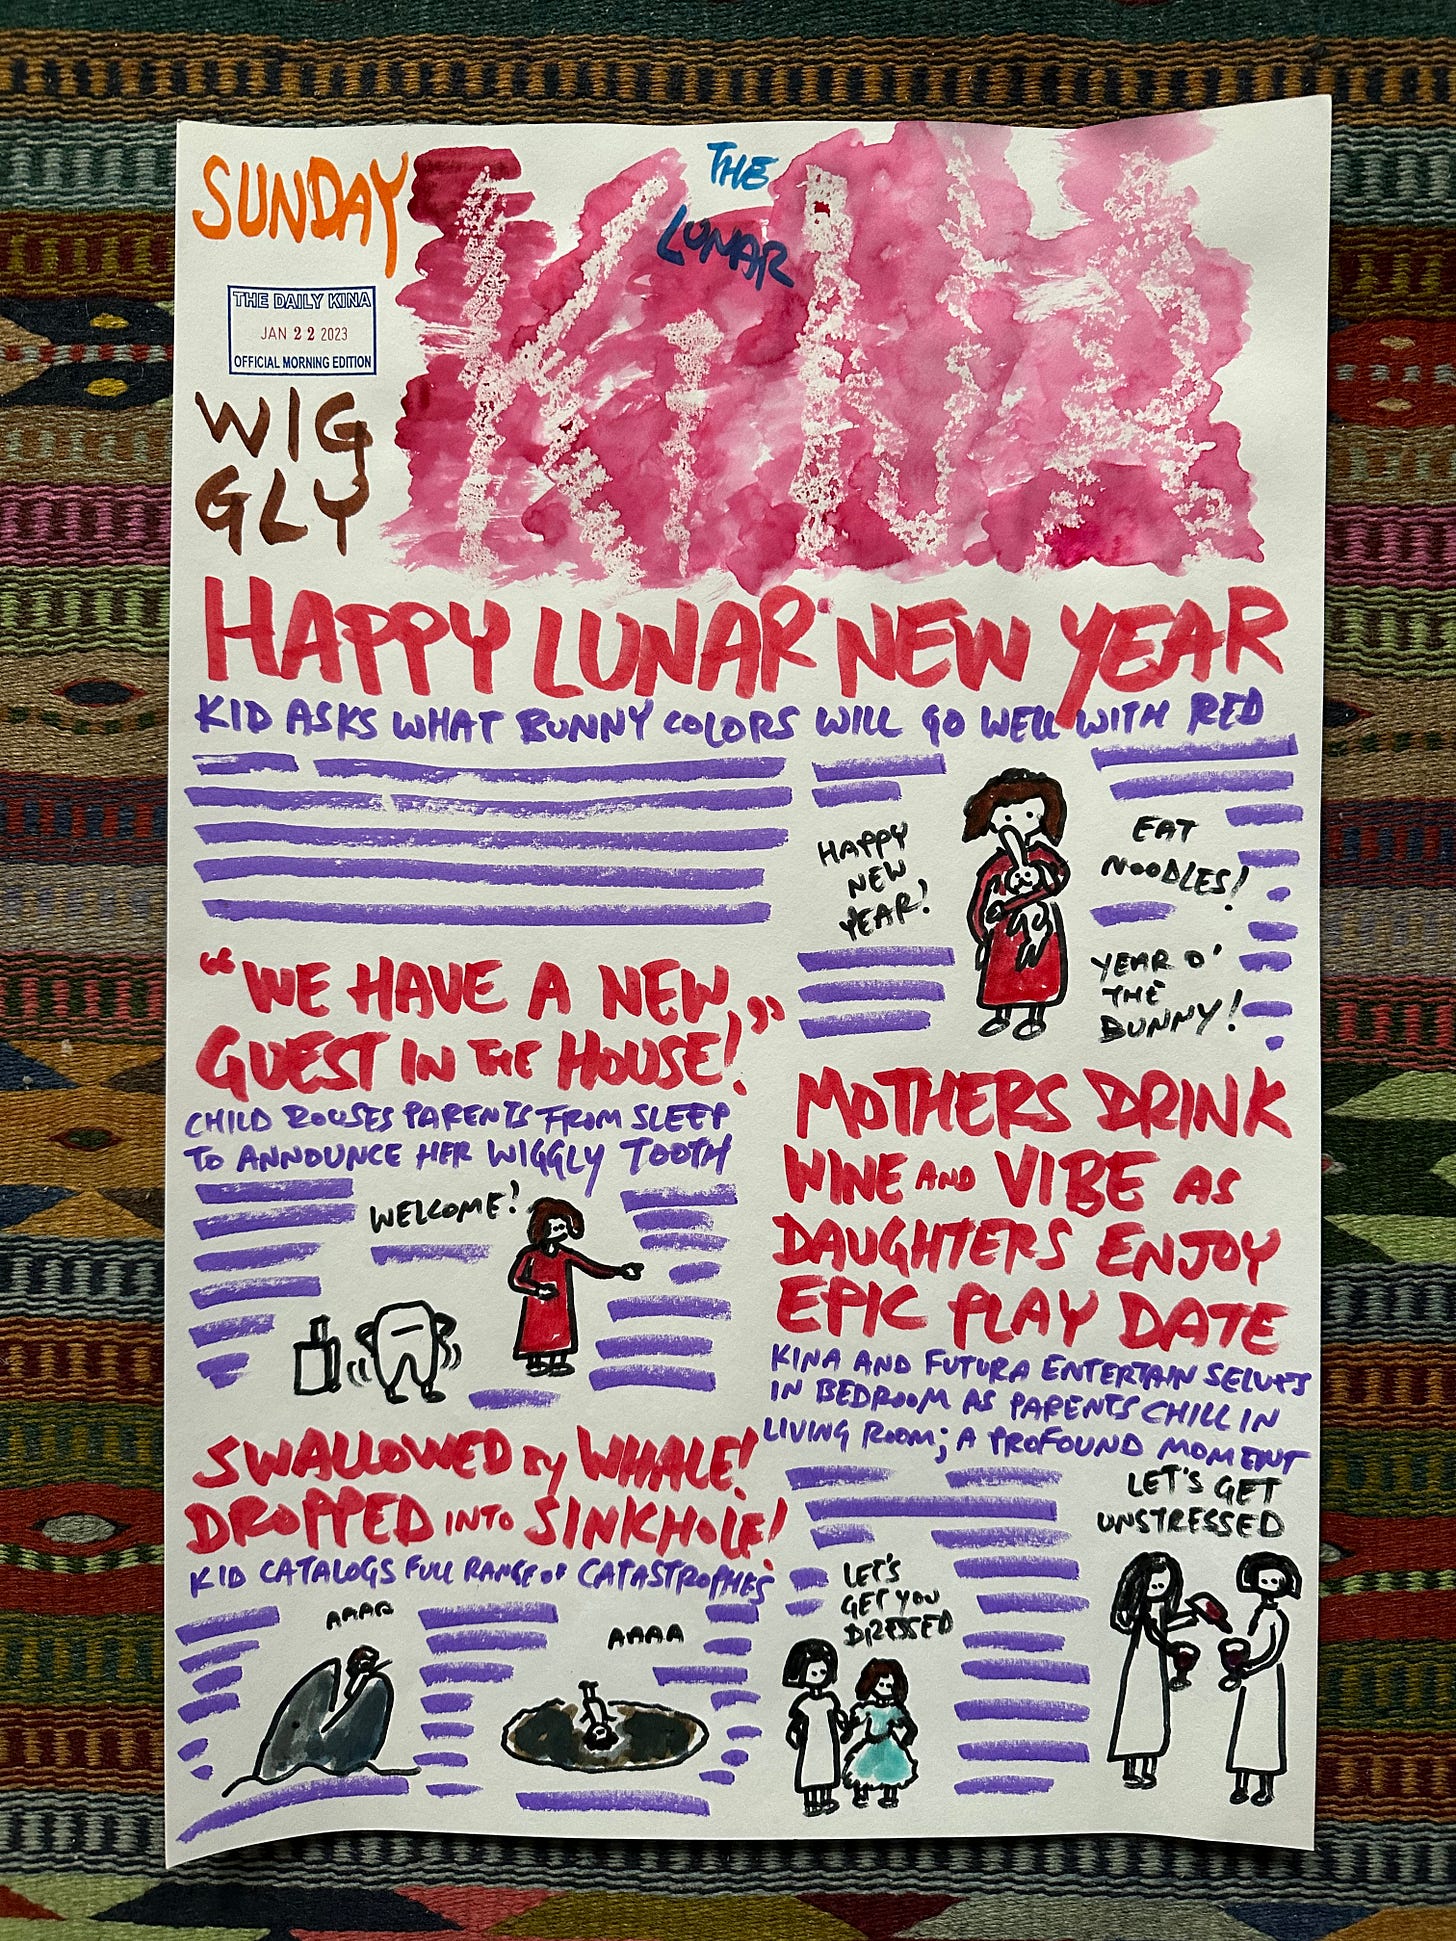 SUNDAY
THE DAILY KINA
JAN 22 2023
OFFICIAL MORNING EDITION
WIG
GLY
THE
LUNAR
KINA
HAPPY LUNAR NEW YEAR
KID ASKS WHAT BUNNY COLORS WILL GO WELL WITH RED
HAPPY
NEW
YEAR!
EAT
NOODLES!
YEAR O'
THE
BUNNY!
"WE HAVE A NEW
GUEST IN THE HOUSE!"
CHILD ROUSES PARENTS FROM SLEEP
TO ANNOUNCE HER WIGGLY TOOTH
WELCOME!
SWALLOWED BY WHALE!
DROPPED INTO SINKHOLE!
KID CATALOGS FULL RANGE OF CATASTROPHES
AAAA
AAAA
MOTHERS DRINK
WINE AND VIBE AS
DAUGHTERS ENJOY
EPIC PLAY DATE
KINA AND FUTURA ENTERTAIN SELVES
IN BEDROOM AS PARENTS CHILL IN
LIVING ROOM; A PROFOUND MOMENT
LET'S GET
UNSTRESSED
LET'S
GET YOU
DRESSED